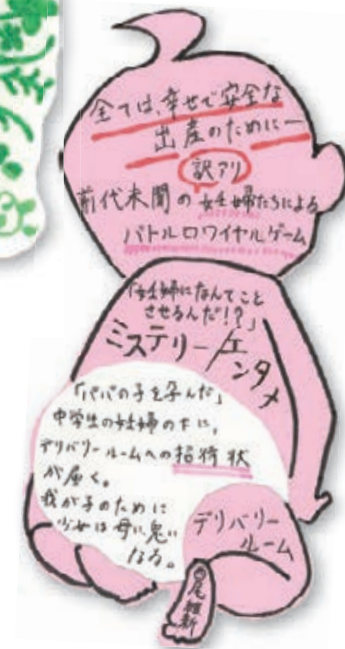 全ては、幸せで安全な
出産のために―
訳アリ
前代未聞の妊婦たちによる
バトルロワイヤルゲーム
「妊婦になんてこと
させるんだ!?」
ミステリー/エンタメ
「パパの子を孕んだ」
中学生の妊婦の下に、
デリバリールームへの招待状
が届く。
我が子のために
少女は母に、鬼に
なる。
デリバリー
ルーム
西尾維新